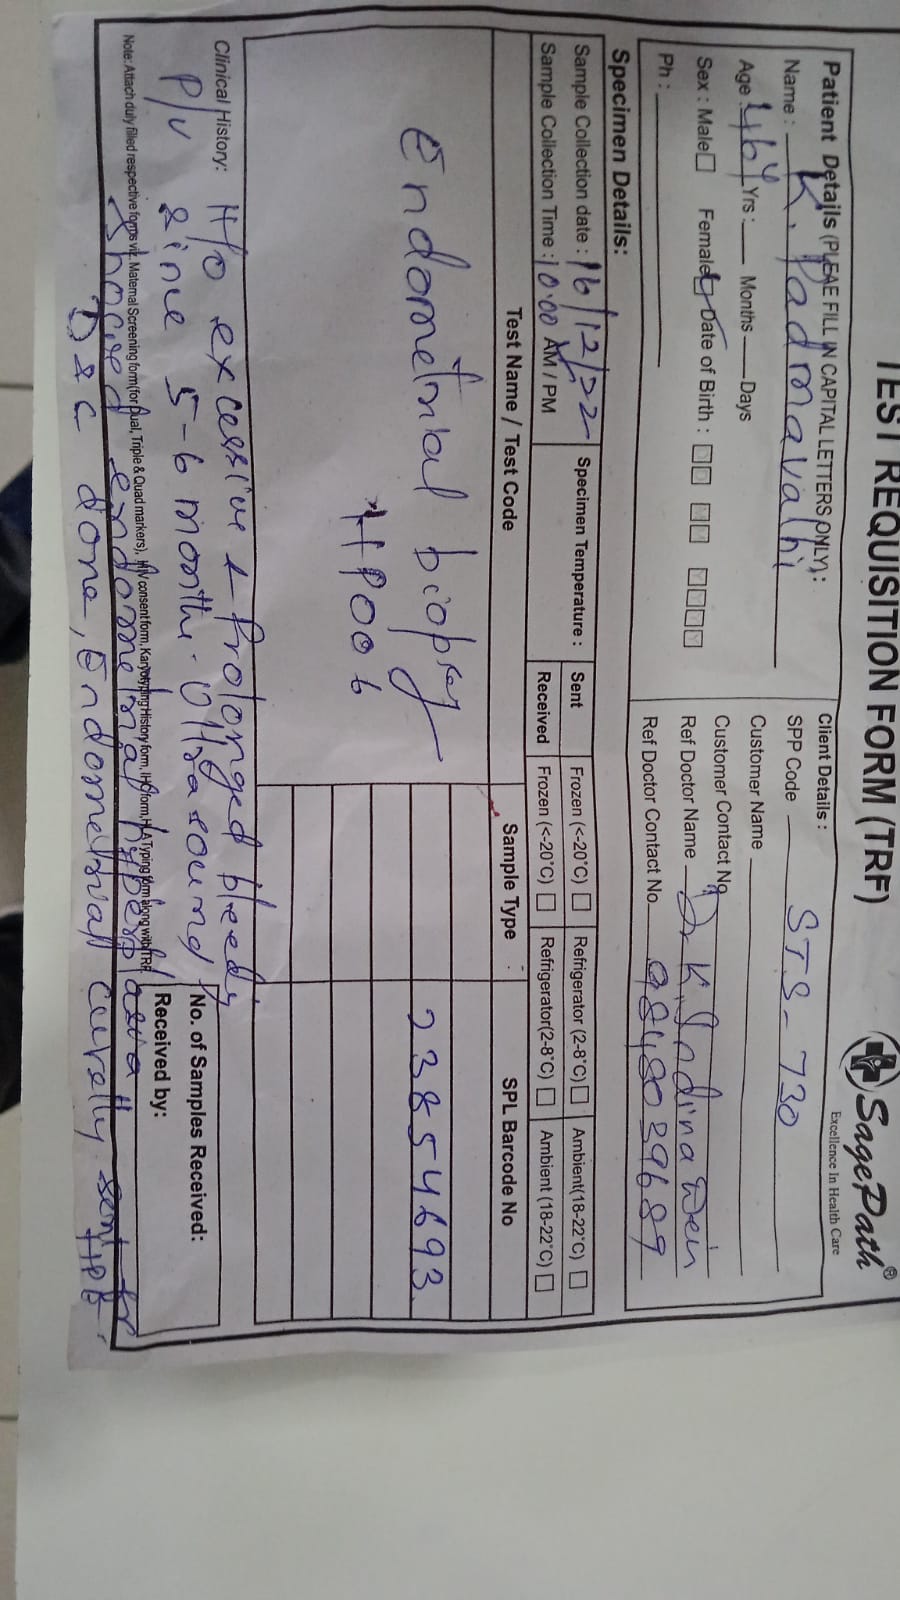 TEST REQUISITION FORM (TRF)
SagePath®
Excellence In Health Care
Patient Details (PLEAE FILL IN CAPITAL LETTERS ONLY):
Name : K. Padmavathi
Age : 46y Yrs : Months Days
Sex : Male Female Date of Birth : DD MM YYYY
Ph :
Client Details :
SPP Code STS-730
Customer Name
Customer Contact No
Ref Doctor Name Dr K. Indira Devi
Ref Doctor Contact No
Specimen Details:
Sample Collection date : 16/12/22
Sample Collection Time : 10:00 AM / PM
Specimen Temperature : Sent Frozen (<-20°C) Refrigerator (2-8°C) Ambient(18-22°C)
Received Frozen (<-20°C) Refrigerator(2-8°C) Ambient (18-22°C)
Test Name / Test Code Sample Type SPL Barcode No
Endometrial biopsy 23854693
HP006
Clinical History: H/o excessive & Prolonged bleedg
P/v since 5-6 months. Ultrasound
No. of Samples Received:
Note: Attach duly filled respective forms viz. Maternal Screening form(for Dual, Triple & Quad markers), HIV consent form, Karyotyping History form, IHC form, HLA Typing form along with TRF
Received by:
Showed endometrial hyperplasia
D&C done, Endometrial curetty sent for HPE.